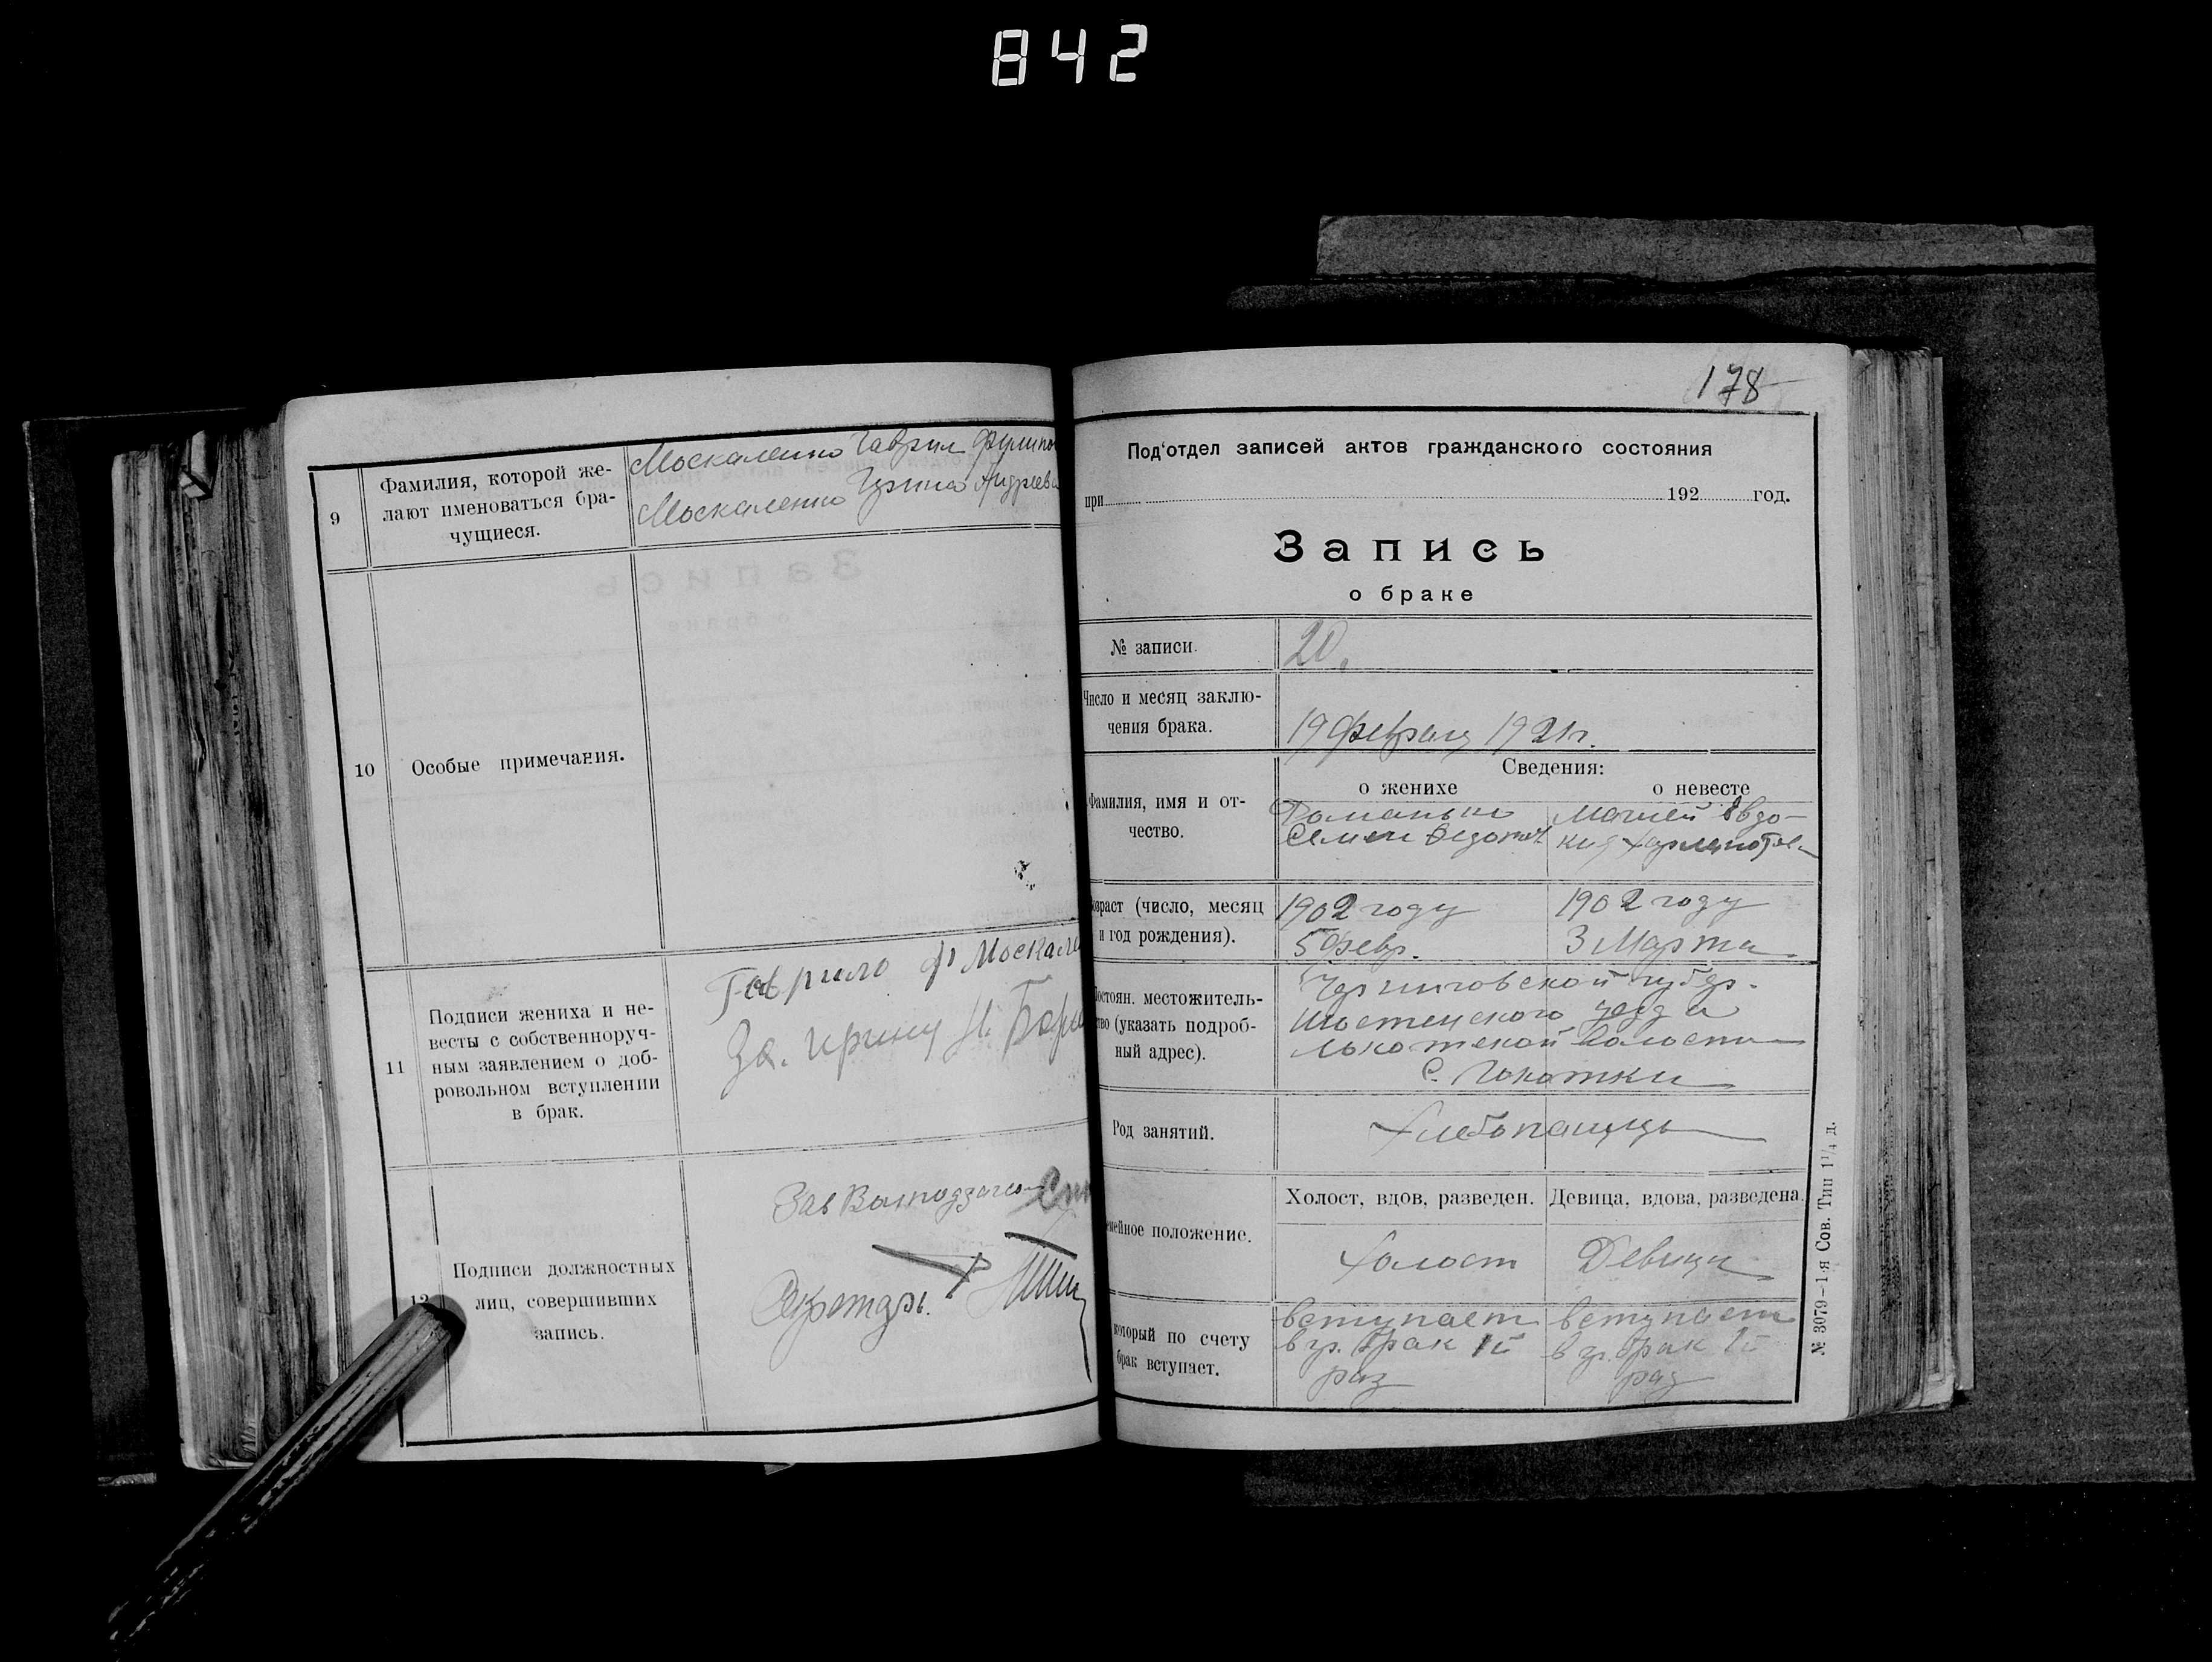 842
9
Фамилия, которой же-
лают именоваться бра-
чущиеся.
Москаленко Гаврил Филипо
Москаленко Ірина Андреев
10
Особые примечания.
11
Подписи жениха и не-
весты с собственноруч-
ным заявлением о доб-
ровольном вступлении
в брак.
Гаврило Ф Москале
За. Ирину Н.
12
Подписи должностных
лиц, совершивших
запись.
Зав
Секретарь.
178
Под‘отдел записей актов гражданского состояния
при 192 год.
Запись
о браке
№ записи.
20.
Число и месяц заклю-
чения брака.
19 февраля 1921 г.
Сведения:
о женихе
о невесте
Фамилия, имя и от-
чество.
Романько
Семен Федотов.
Евдо-
кия
озраст (число, месяц
и год рождения).
1902 году
5 Февр.
1902 году
3 Марта
Постоян. местожитель-
тво (указать подроб-
ный адрес).
Черниговской губер.
Шостенского уезда
Локотской Волости
С. Локотки
Род занятий.
Хлебопашцы
емейное положение.
Холост, вдов, разведен.
Девица, вдова, разведена.
Холост
Девица
который по счету
брак вступает.
вступает
в гр. брак 1й
раз
вступает
в гр. брак 1й
раз
№ 3079-1-я Сов. Тип 1¼ д.